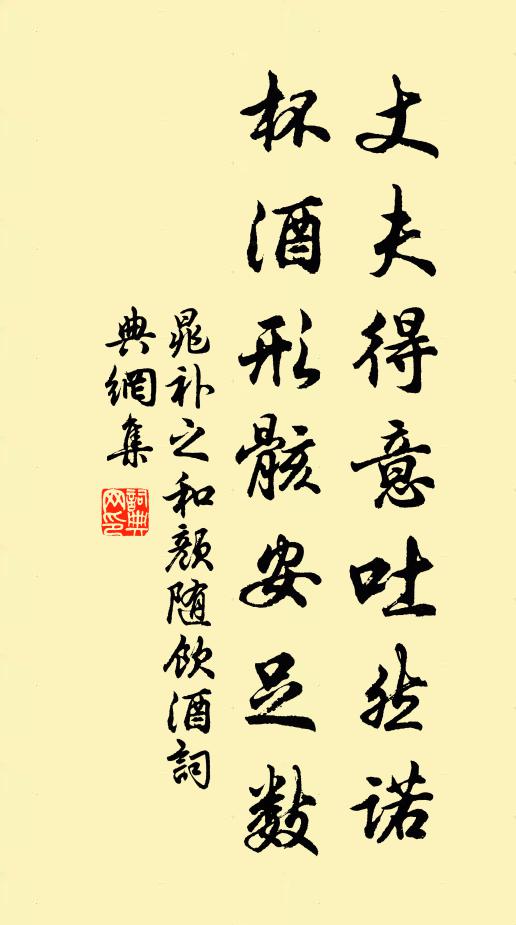 丈夫得意吐然诺
杯酒形骸安足数
晁补之和颜随饮酒詞
典網集
詞典
网印